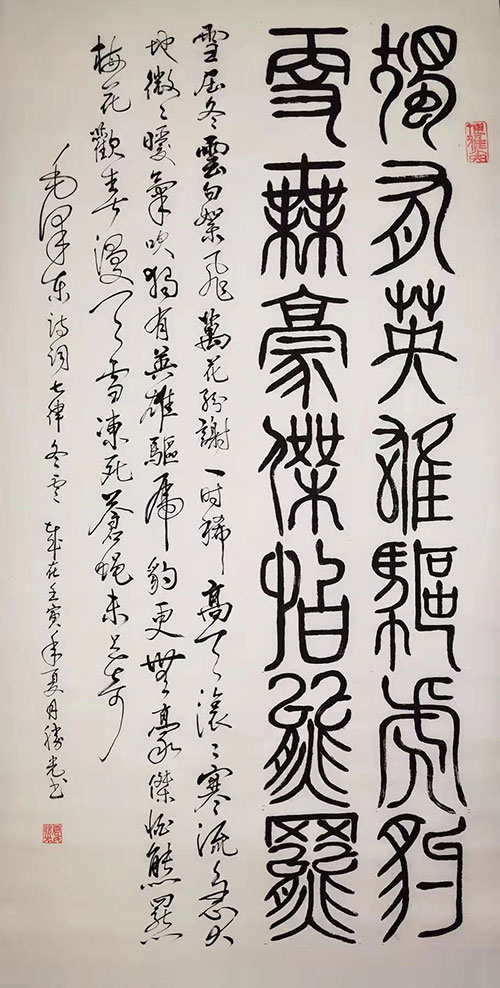 獨有英雄驅虎豹
更無豪傑怕熊羆
雪压冬雲白絮飛萬花紛謝一时稀高天滚々寒流急大
地微々暖氣吹獨有英雄驅虎豹更無豪傑怕熊羆
梅花歡喜漫天雪凍死蒼蝇未足奇
毛澤東詩詞七律冬雲 歲在壬寅年夏月勝光书